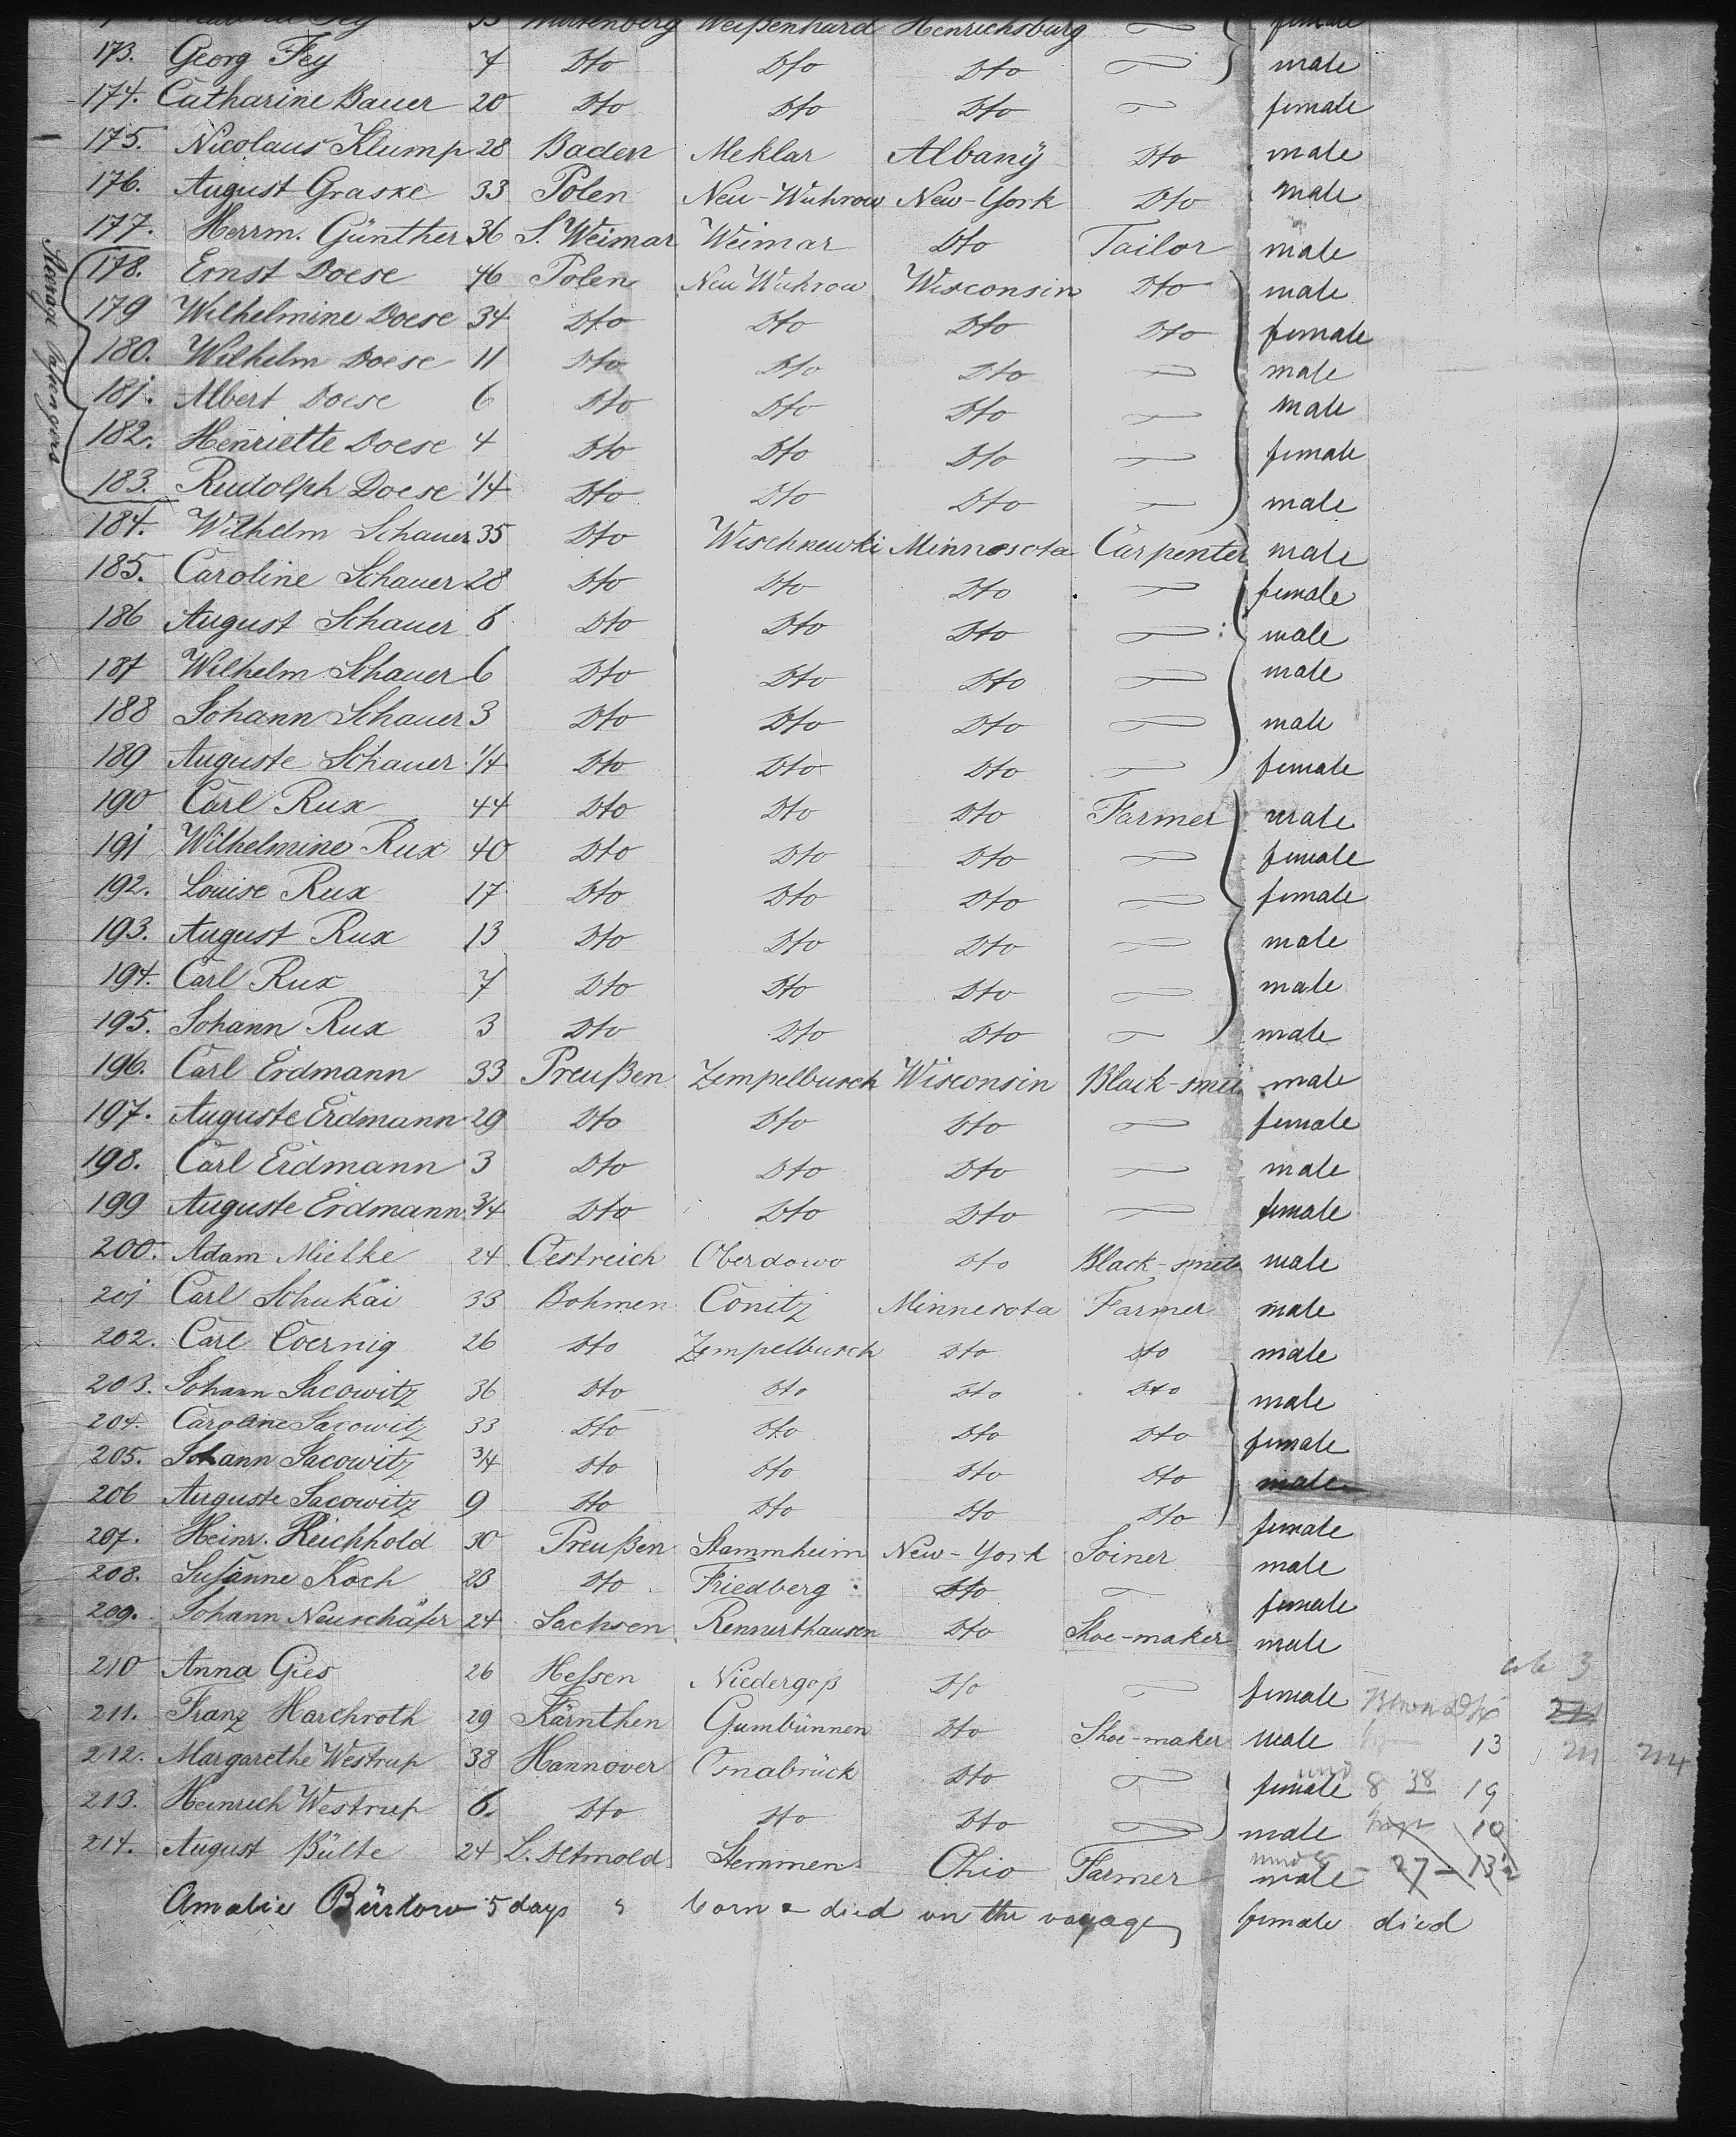 33 Würtenberg Weißenhard Henrichsburg female
173. Georg Fey 7 Dto Dto Dto male
174. Catharine Bauer 20 Dto Dto Dto female
175. Nicolaus Klump 28 Baden Meklar Albany Dto male
176. August Graske 33 Polen Neu-Wuhrow New-York Dto male
177. Herrm. Günther 36 S. Weimar Weimar Dto Tailor male
Steerage Passengers
178. Ernst Doese 46 Polen Neu Wuhrow Wisconsin Dto male
179 Wilhelmine Doese 34 Dto Dto Dto Dto female
180. Wilhelm Doese 11 Dto Dto Dto male
181. Albert Doese 6 Dto Dto Dto male
182. Henriette Doese 4 Dto Dto Dto female
183. Rudolph Doese 1/4 Dto Dto Dto male
184. Wilhelm Schauer 35 Dto Wischnewki Minnesota Carpenter male
185. Caroline Schauer 28 Dto Dto Dto female
186 August Schauer 8 Dto Dto Dto male
187 Wilhelm Schauer 6 Dto Dto Dto male
188 Johann Schauer 3 Dto Dto Dto male
189 Auguste Schauer 1/4 Dto Dto Dto female
190 Carl Rux 44 Dto Dto Dto Farmer male
191 Wilhelmine Rux 40 Dto Dto Dto female
192. Louise Rux 17 Dto Dto Dto female
193. August Rux 13 Dto Dto Dto male
194. Carl Rux 7 Dto Dto Dto male
195. Johann Rux 3 Dto Dto Dto male
196. Carl Erdmann 33 Preußen Zempelbusch Wisconsin Black-smit male
197. Auguste Erdmann 29 Dto Dto Dto female
198. Carl Erdmann 3 Dto Dto Dto male
199 Auguste Erdmann 3/4 Dto Dto Dto female
200. Adam Mielke 24 Oestreich Oberdowo Dto Black-smit male
201 Carl Schukai 33 Bohmen Conitz Minnesota Farmer male
202. Carl Coernig 26 Dto Zempelbusch Dto Dto male
203. Johann Sacowitz 36 Dto Dto Dto Dto male
204. Caroline Sacowitz 33 Dto Dto Dto Dto female
205. Johann Sacowitz 3/4 Dto Dto Dto Dto male
206 Auguste Sacowitz 9 Dto Dto Dto Dto female
207. Heinr. Reichhold 30 Preußen Stammheim New-York Joiner male
208. Susanne Koch 23 Dto Friedberg Dto female
209. Johann Neuschäfer 24 Sachsen Rennerthausen Dto Shoe-maker male
210 Anna Gies 26 Hessen Niedergoß Dto female
211. Franz Harchroth 29 Kärnthen Gumbünnen Dto Shoe-maker male 13 211 214
212. Margarethe Westrup 38 Hannover Osnabrück Dto female 8 38 19
213. Heinrich Westrup 6. Dto Dto Dto male 10
214. August Bülte 24 L. Detmold Stemmen Ohio Farmer male 27 - 13
Amalie Bürlow 5 days born & died on the voyage female died